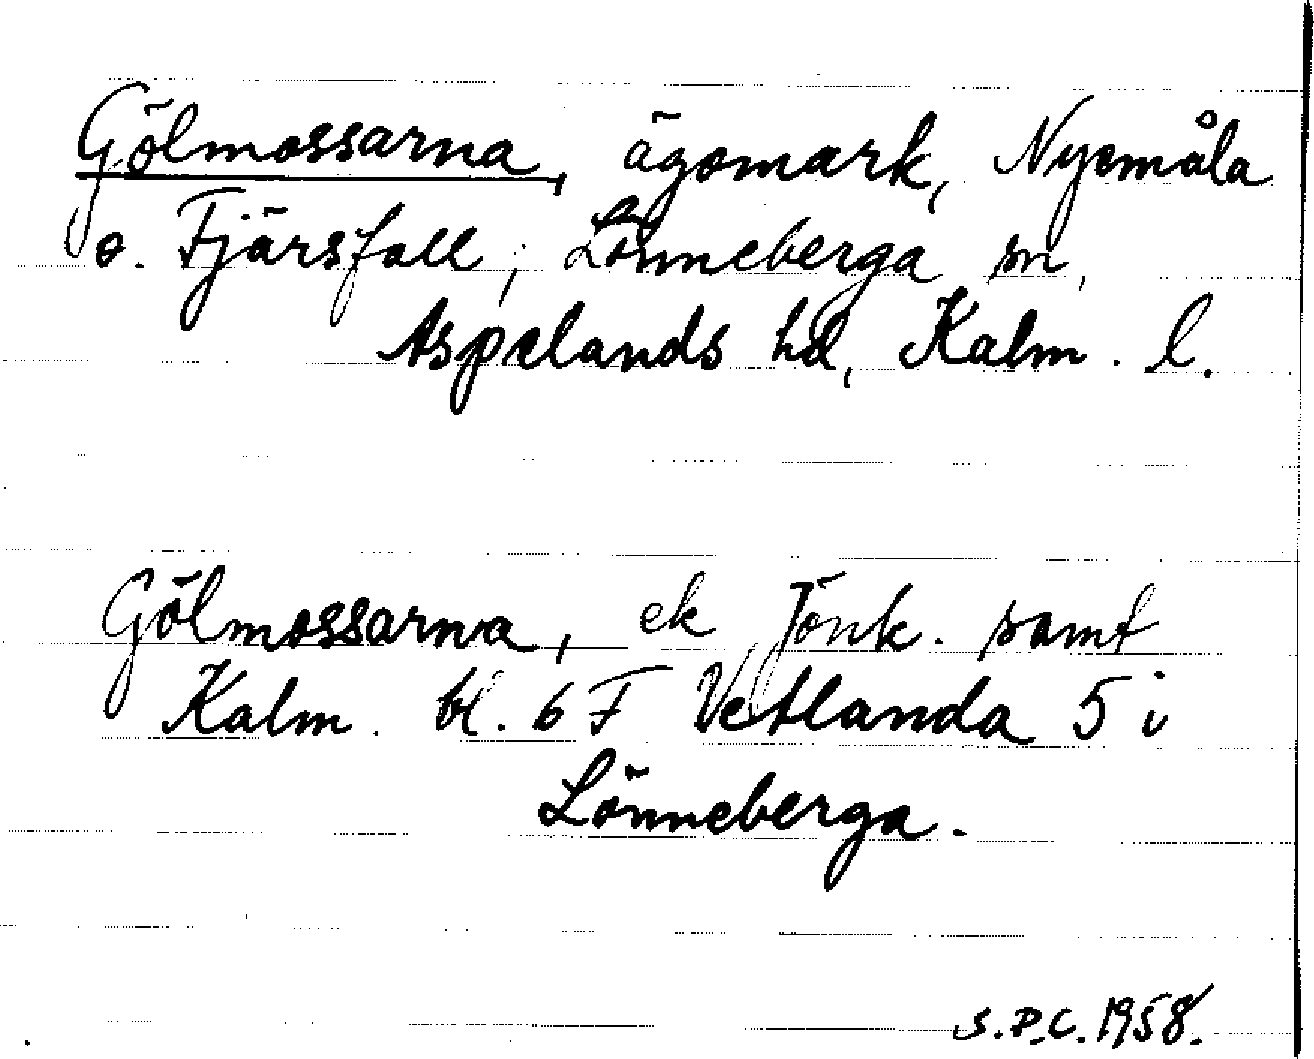 Gölmossarna, ägomark, Nyemåla
o. Fjärsfall, Lönneberga sn,
Aspelands hd, Kalm. l.
Gölmossarna, ek Jönk. samt
Kalm. bl. 6 F Vetlanda 5 i
Lönneberga.
S.P.C. 1958.